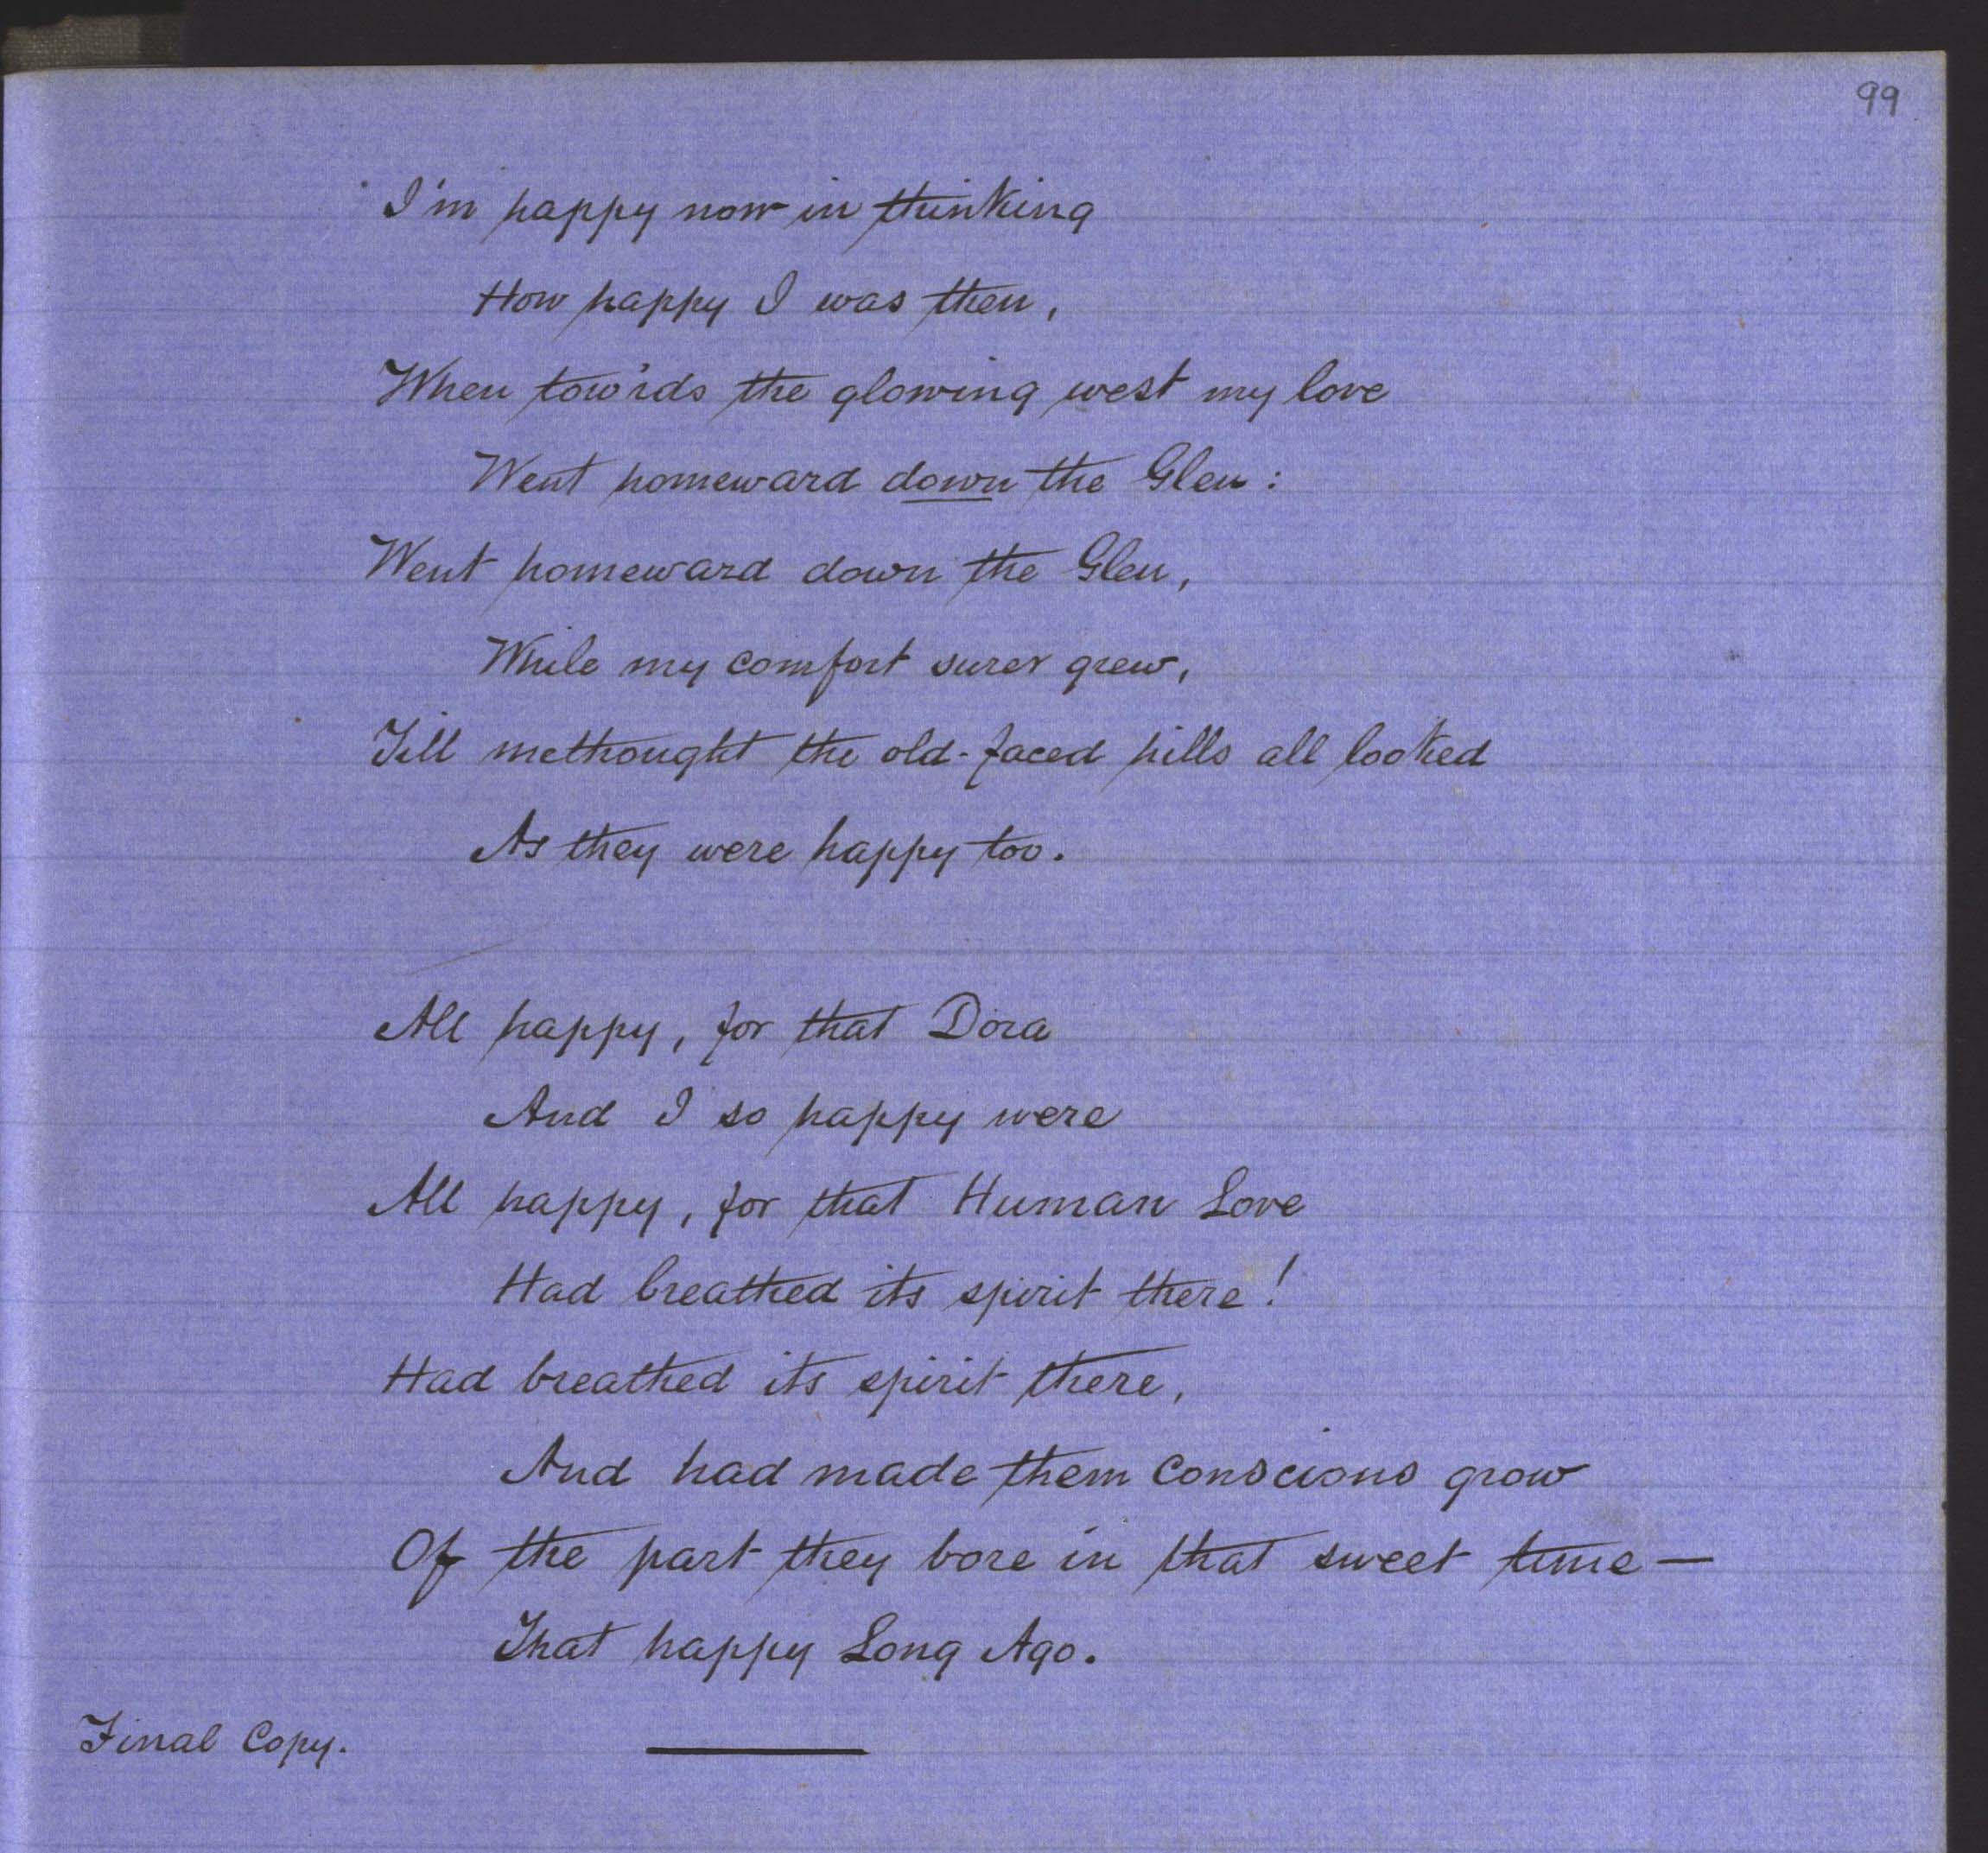 99
I'm happy now in thinking
How happy I was then,
When tow'rds the glowing west my love
Went homeward down the Glen:
Went homeward down the Glen,
While my comfort surer grew,
Till methought the old-faced hills all looked
As they were happy too.
All happy, for that Dora
And I so happy were
All happy, for that Human Love
Had breathed its spirit there!
Had breathed its spirit there,
And had made them conscious grow
Of the part they bore in that sweet time—
That happy Long Ago.
Final Copy.